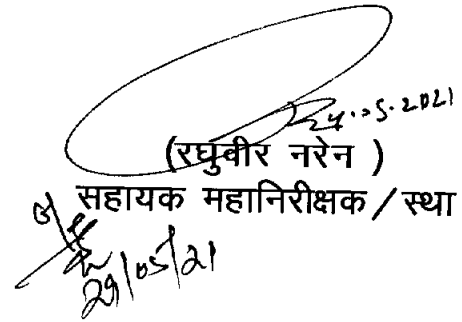 24.05.2021
(रघुवीर नरेन )
सहायक महानिरीक्षक/स्था
29/05/21